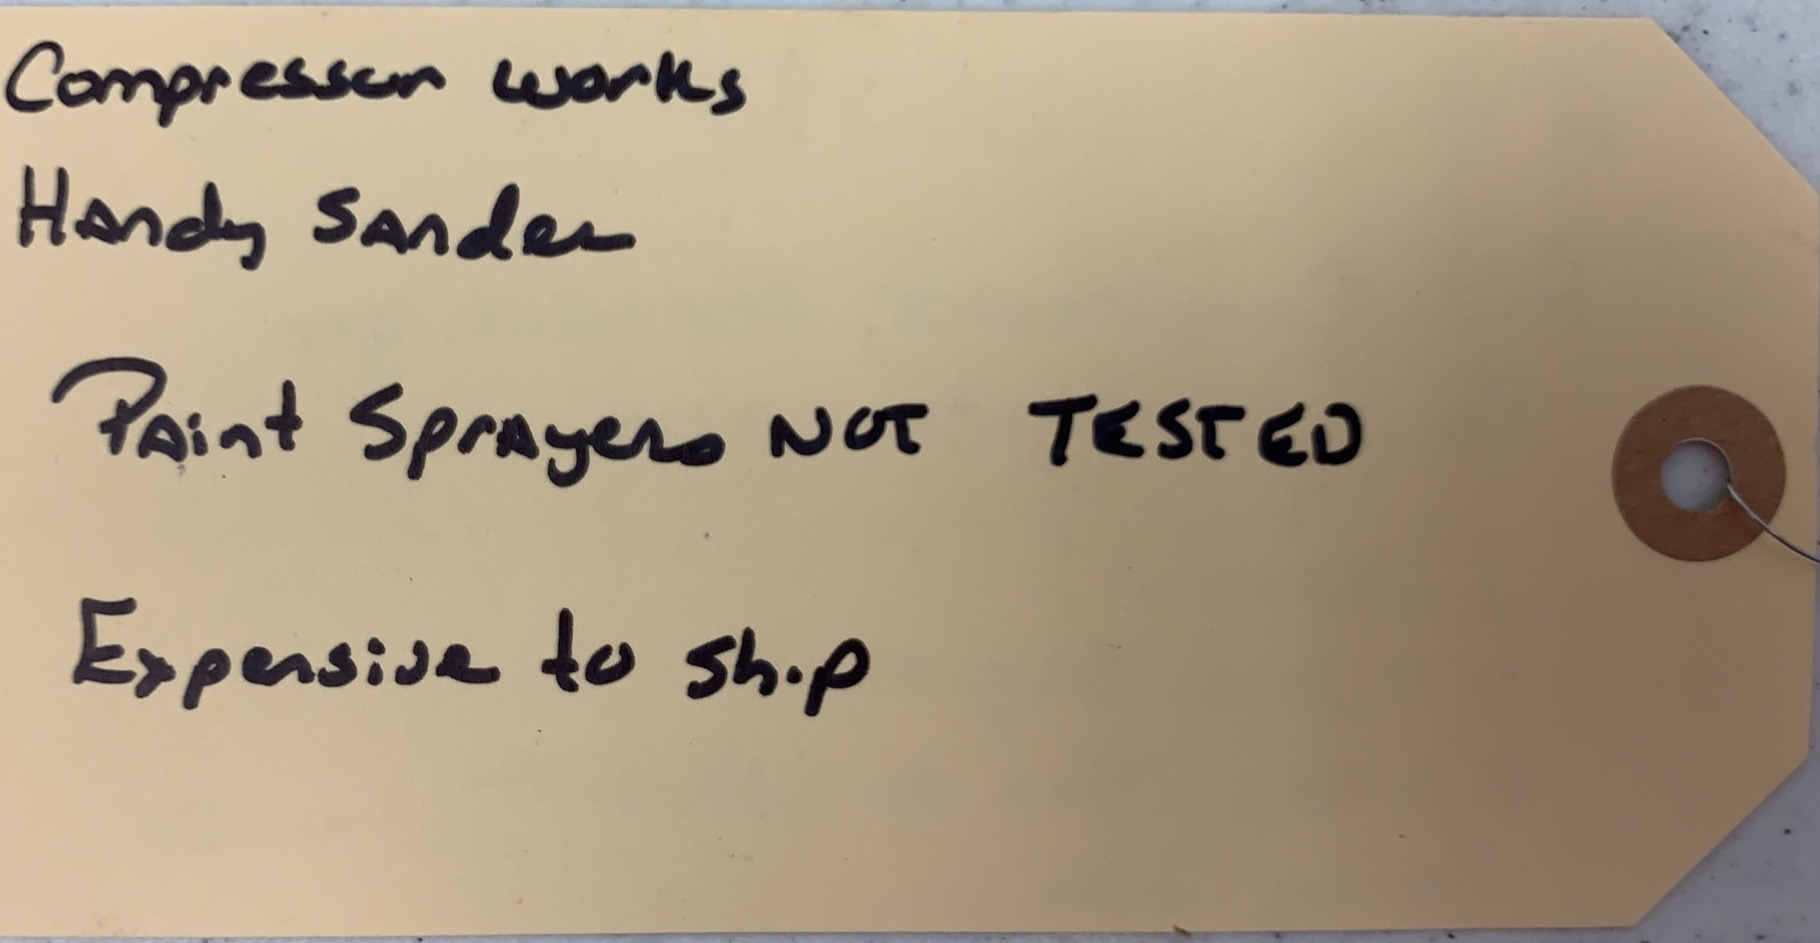 Compressor works
Handy Sander
Paint Sprayers NOT TESTED
Expensive to ship